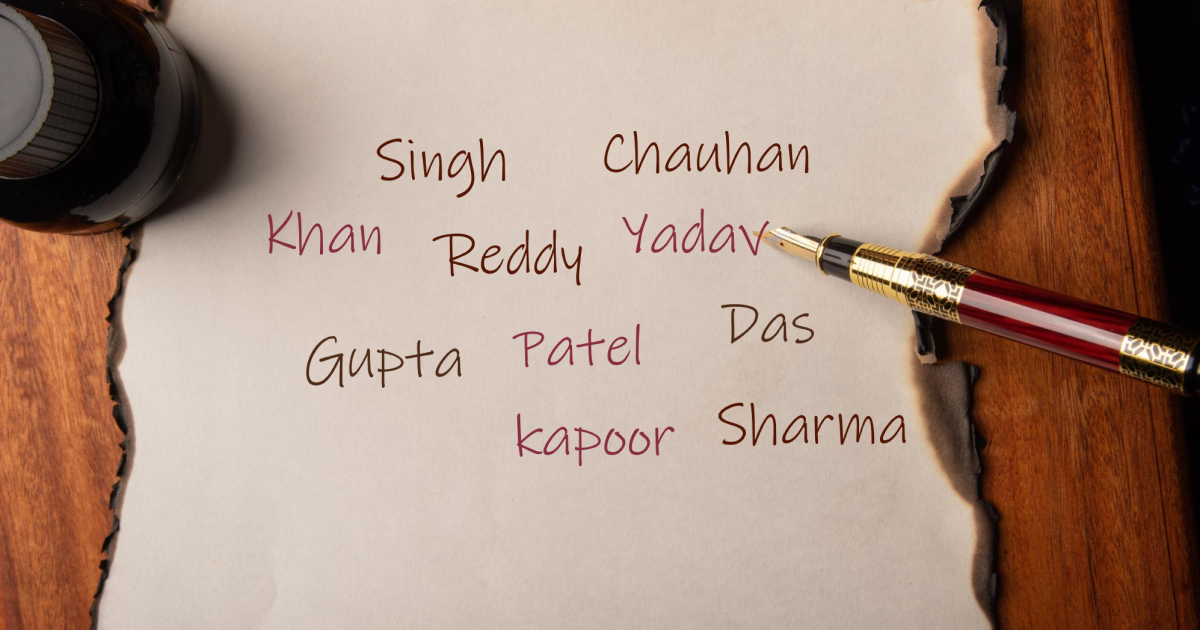 Singh Chauhan
Khan Reddy Yadav
Gupta Patel Das
kapoor Sharma